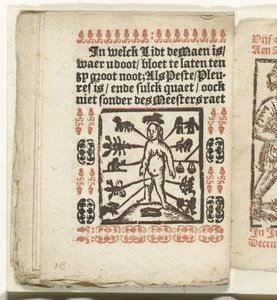 In welck Lidt de Maen is/
waer u doot/ bloet te laten ten
zy groot noot; Als Peste/ Pleu-
res is/ ende sulck quaet/ oock
niet sonder des Meesters raet
Dijf
Aen
In I
Decem